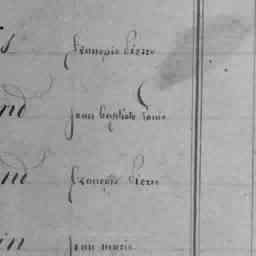 s françois pierre
nd jean baptiste louis
nd françois pierre
in jean marie